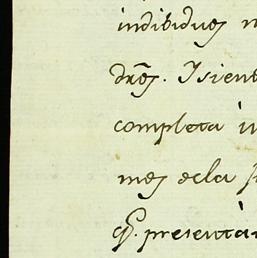 individuos
dro̅s. Isient
completa in
mos dela
q̅. presenta